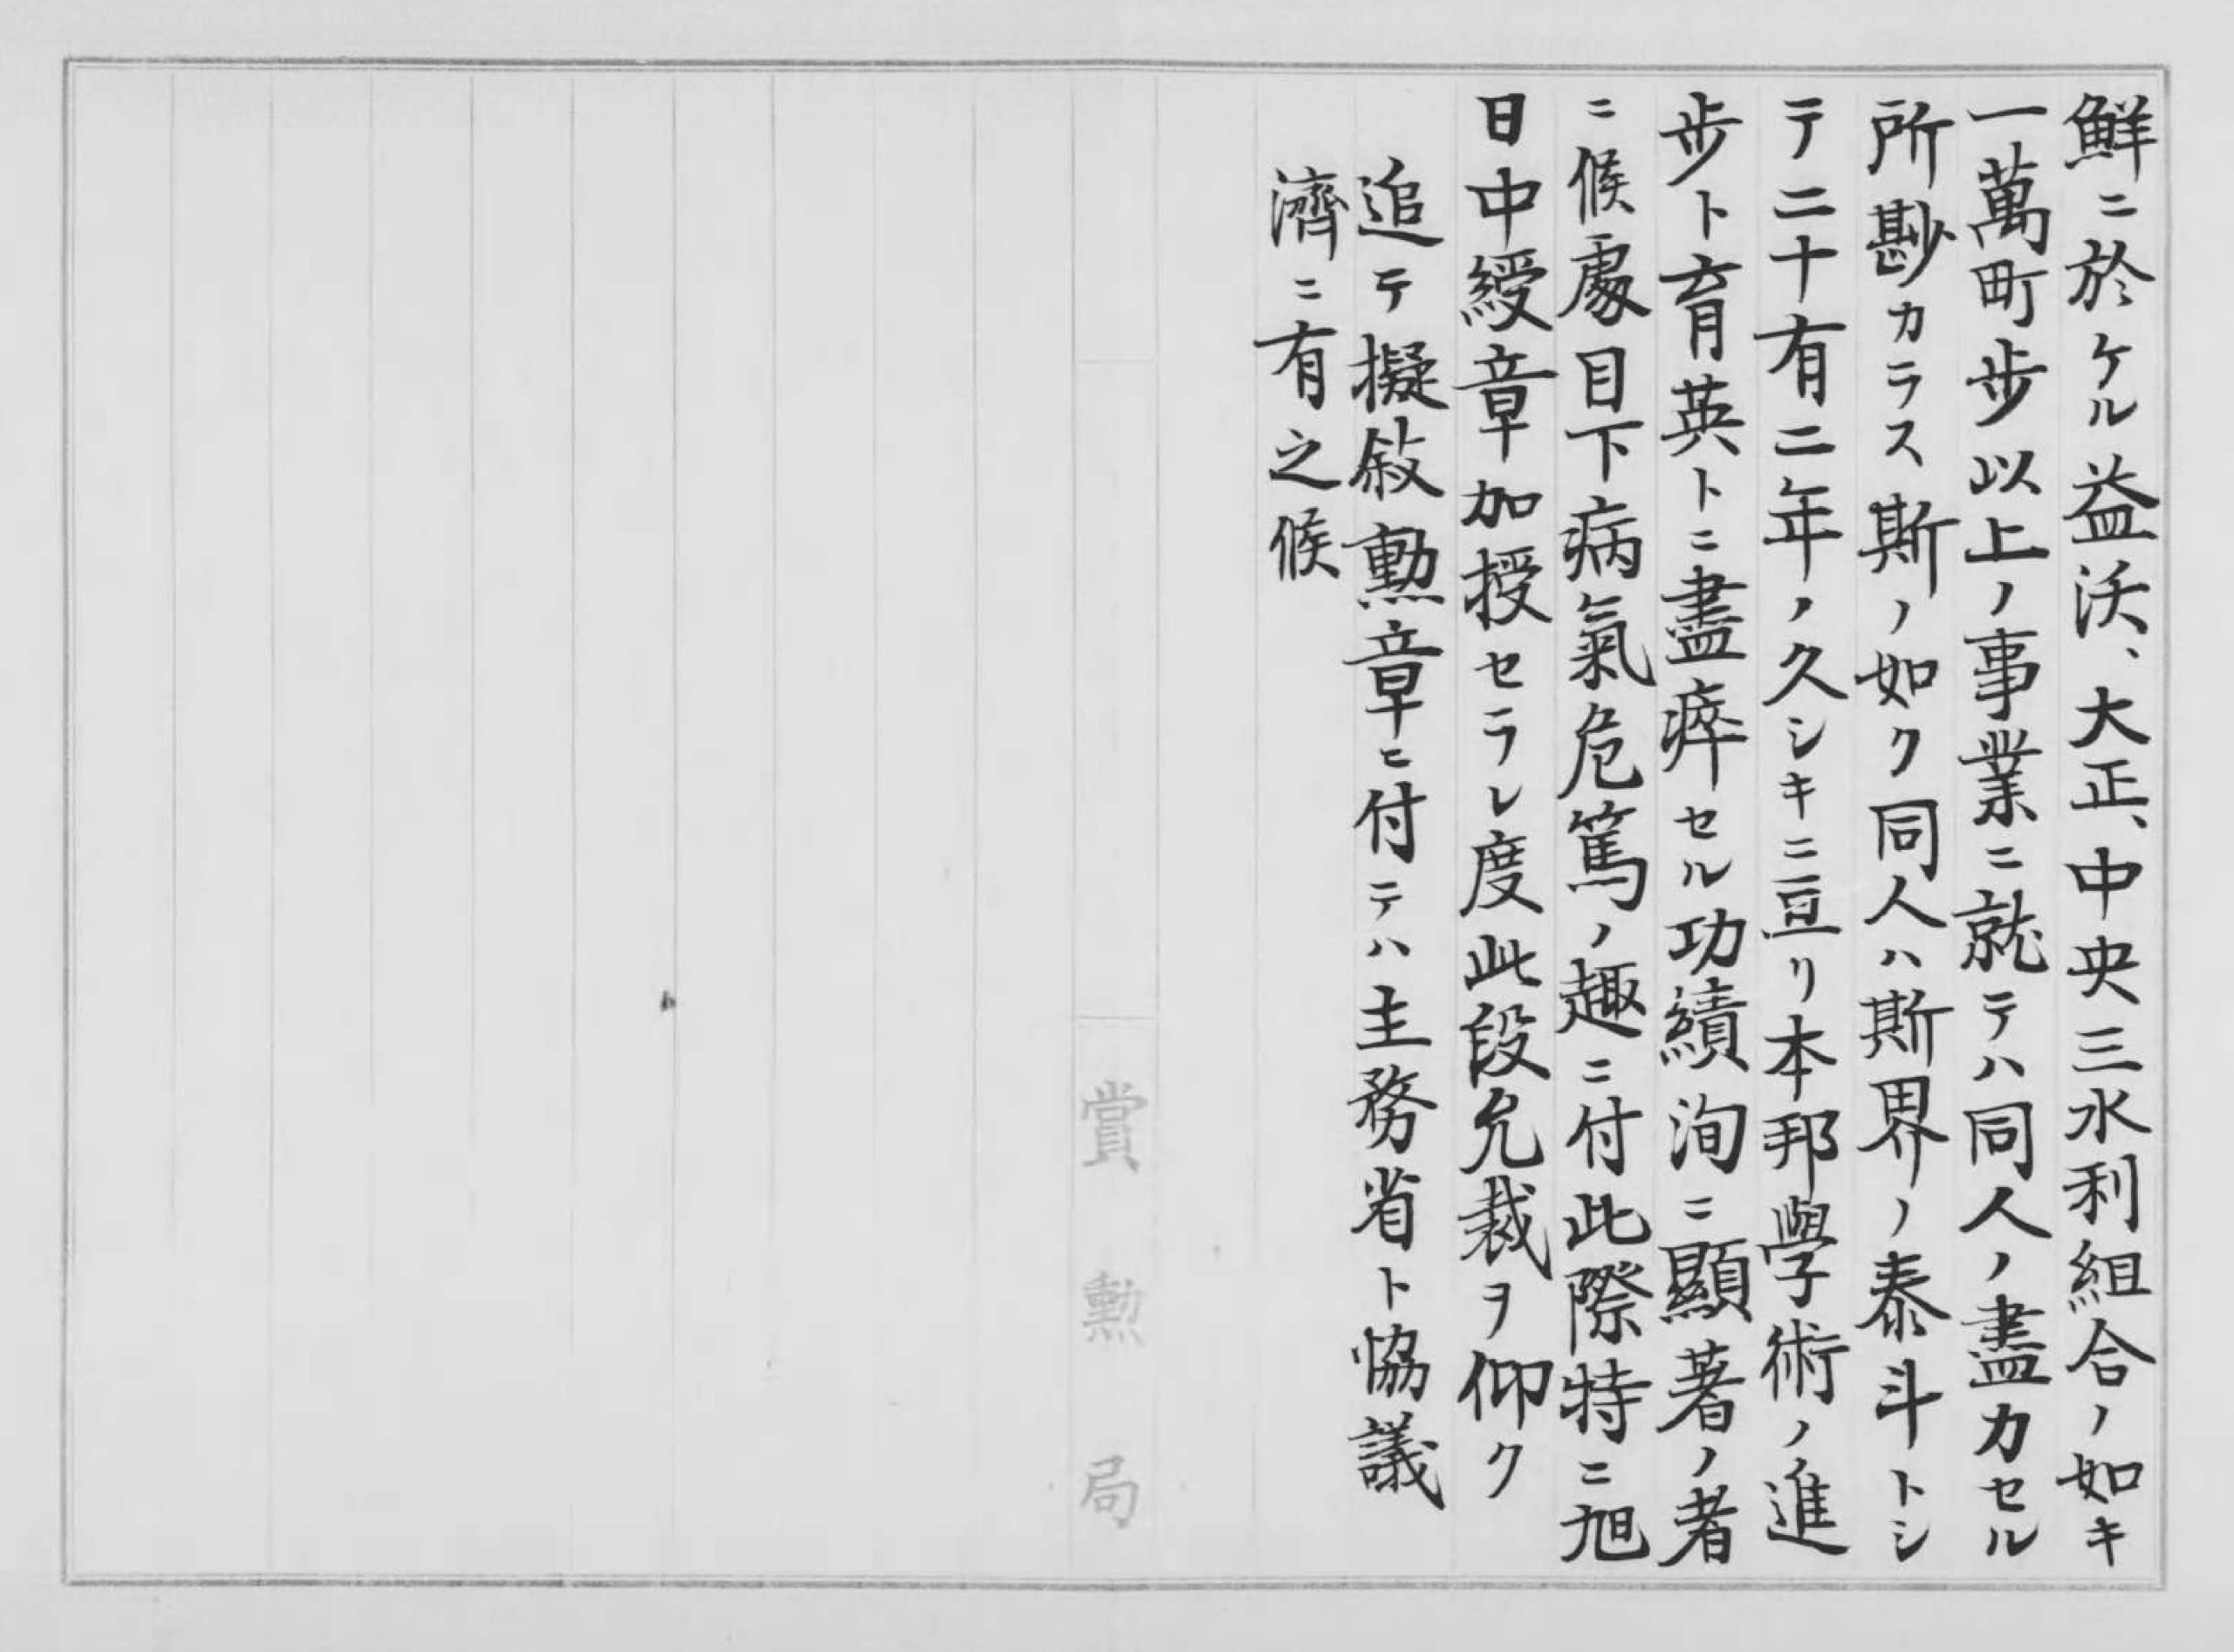 鮮ニ於ケル益沃、大正、中央三水利組合ノ如キ
一萬町歩以上ノ事業ニ就テハ同人ノ盡力セル
所尠カラス斯ノ如ク同人ハ斯界ノ泰斗トシ
テ二十有二年ノ久シキニ亘リ本邦學術ノ進
歩ト育英トニ盡瘁セル功績洵ニ顯著ノ者
ニ候處目下病氣危篤ノ趣ニ付此際特ニ旭
日中綬章加授セラレ度此段允裁ヲ仰ク
追テ擬敍勳章ニ付テハ主務省ト協議
濟ニ有之候
賞勳局